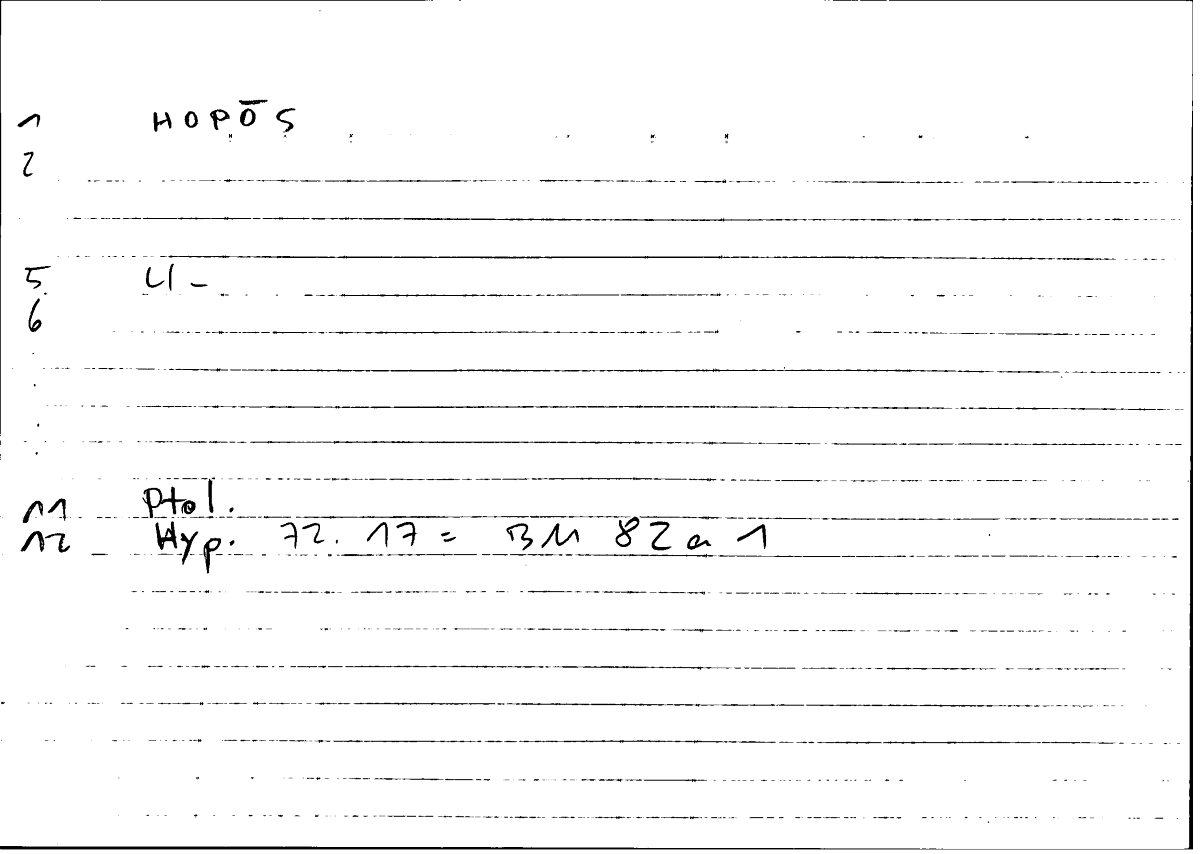 1 HOPŌS
2
5 U -
6
11 Ptol.
12 Hyp. 72. 17 = BM 82 a 1